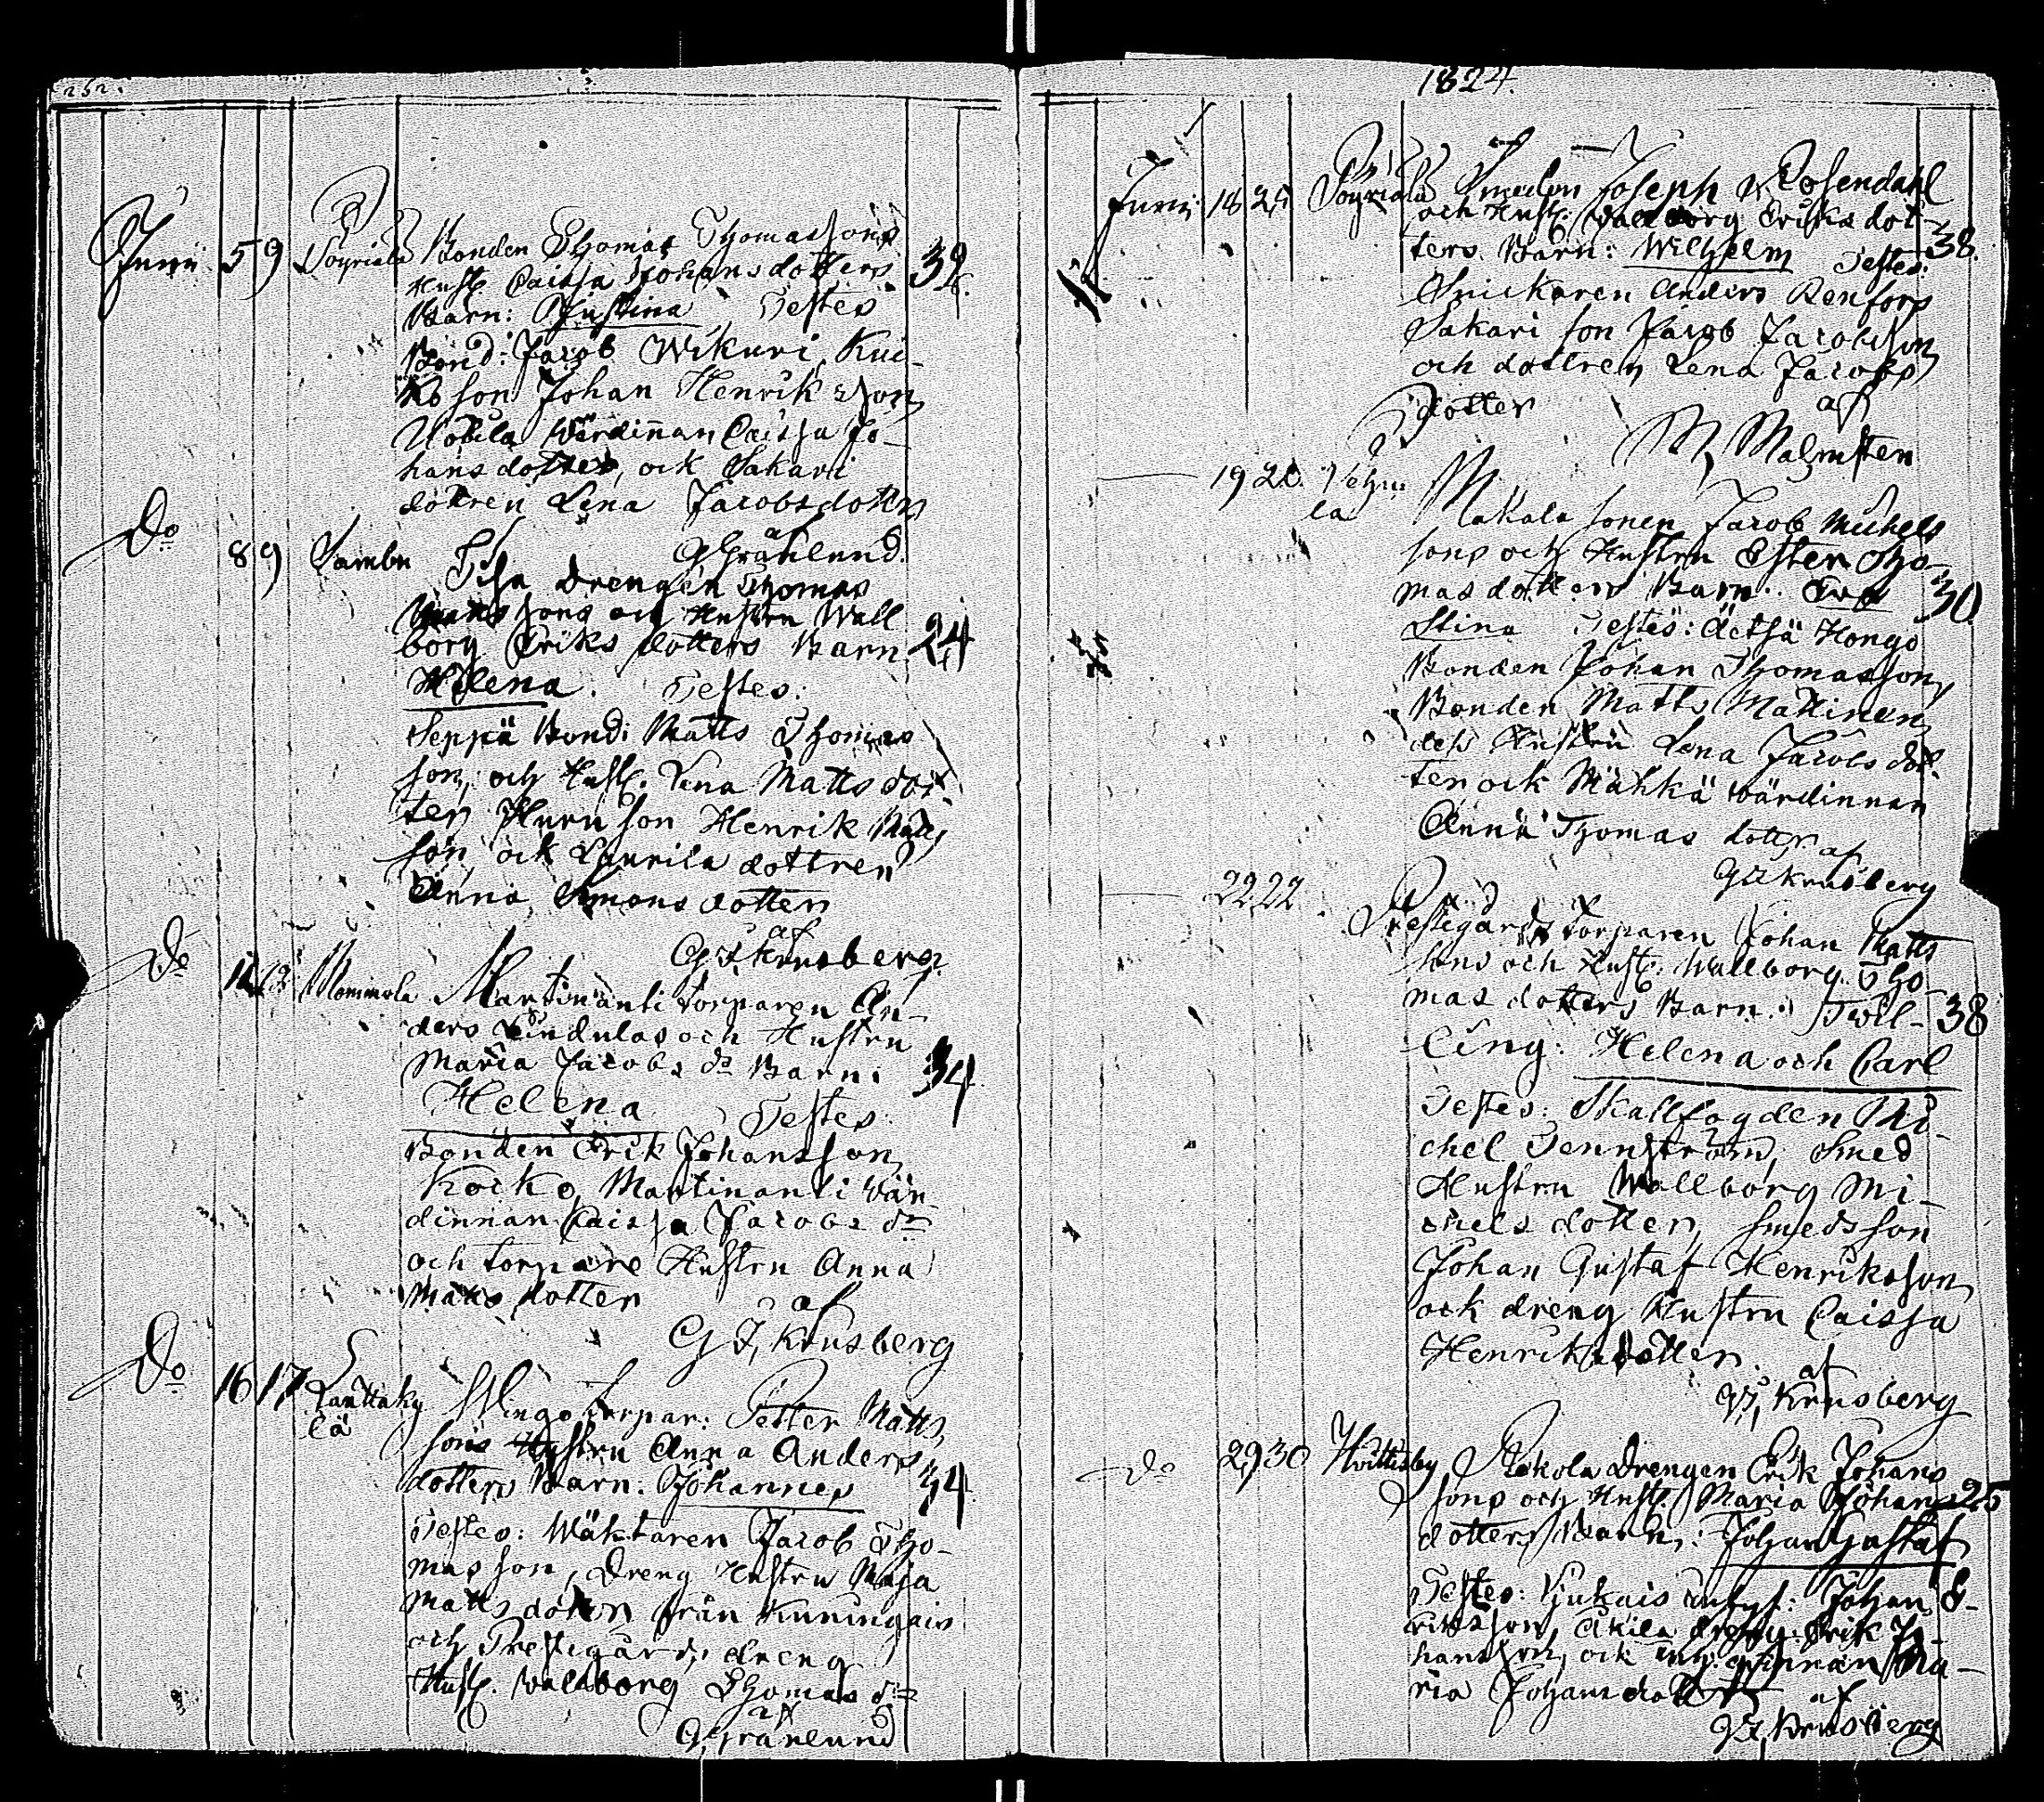 252.
Junii 5 9 Pöyriälä Bonden Thomas Thomassons
Hust. Caissa Johansdotters 39
Barn: Justina Testes
Bond: Jacob Wikuri, Kui-
ko son Johan Henriksson
Uotila Wärdinnan Caissa Jo-
hansdotter, ock Sakari
dottren Lena Jacobsdotter
af
G Granlund.
Do 8 9 Sambu drengen Thomas
Matts sons och Hustru Wall
borg Eriks dotters Barn 24
Helena. Testes:
Seppä Bond: Matts Thomas
son, och Hust. Lena Matts dot
ter, Huru son Henrik Matts
son ock Laurila dottren
Anna Simons dotter
af
G F, Krusberg
Do 12 13 Mommola Martinanti torparen An-
ders Lindulas och Hustru
Maria Jacobs dr Barn: 34
Helena Testes:
Bonden Erik Johansson
Kocko, Martinanti Vär
dinnan Caissa Jacobs dr
och torpare Hustru Anna
Matts dotter
af
G F, Krusberg
Do 16 17 Lauttaky
lä
torpar: Petter Matts
sons Hustru Anna Anders
dotters Barn: Johannes 34
Testes: Wäktaren Jacob Tho-
mas son, Dreng Hustru Maja
Matts dotter från Kuningais
och Prestegårds dreng
Hust. Wallborg Thomas dr
af
G Granlund
1824.
Junii 18 20 Pöyriälä Smeden Joseph Rosendahl
och Hust: Wallborg Eriks dot-
ters Barn: Wilhelm Testes: 38.
Snickaren Anders Renfors
Sakari son Jacob Jacobsson
och dottren Lena Jacobs
dotter
af
M, Malmsten
19 20. Vehm
la
Makala sonen Jacob Michels
sons och Hustru Ester Tho-
mas dotters Barn: Eva 30
Stina Testes: Äetsä Hongo
Bonden Johan Thomasson,
Bonden Matts Mattinen
des Hustru Lena Jacobs dot
ter ock Mähkä wärdinnan
Anna Thomas dotter
af
G F Krusberg
22 22. Prestegårds torparen Johan Matts
sons och Hust: Wallborg Tho
mas dotters Barn: Twil- 38
ling: Helena och Carl
Testes: Skallfogden Mi-
chel Tennström, Smed
Hustru Wallborg Mi-
chels dotter, smedsson
Johan Gustaf Henriksson
ock dreng Hustru Caissa
Henriksdotter.
af
G F, Krusberg
Do 29 30 Hvittisby Rekola Drengen Erik Johans
sons och Hust: Maria Johans 25
dotters Barn: Johan Gustaf
Testes: Johan E-
riksson, Äkilä dreng: Erik Jo-
hansson, ock Ma-
ria Johansdotter
af
G F, Krusberg